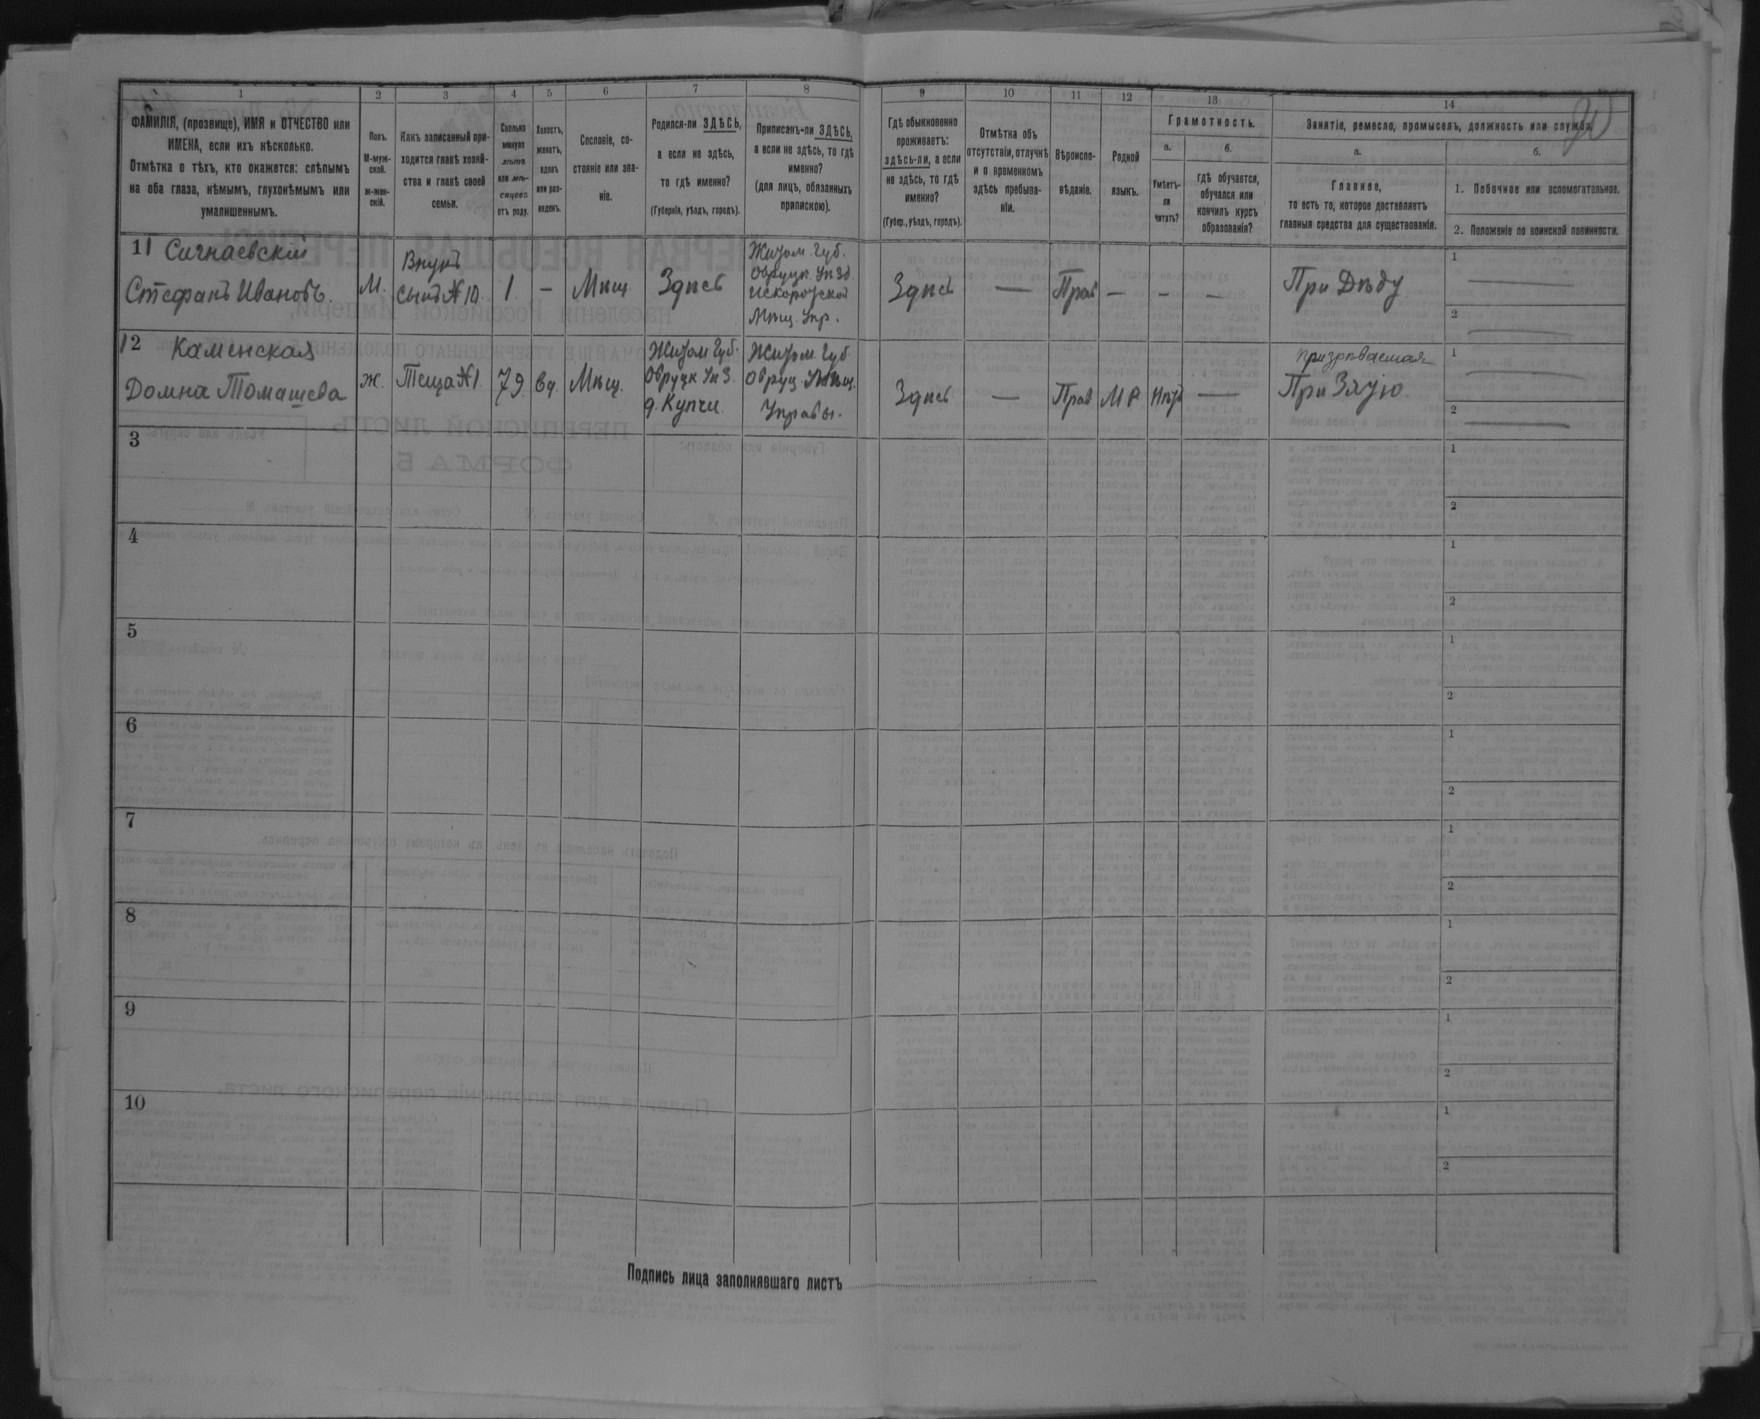 1 2 3 4 5 6 7 8 9 10 11 12 13 14
ФАМИЛІЯ, (прозвище), ИМЯ и ОТЧЕСТВО или
ИМЕНА, если ихъ нѣсколько.
Отмѣтка о тѣхъ, кто окажется: слѣпымъ
на оба глаза, нѣмымъ, глухонѣмымъ или
умалишеннымъ.
Полъ.
М-муж-
ской.
Ж-жен-
скій.
Какъ записанный при-
ходится главѣ хозяй-
ства и главѣ своей
семьи.
Сколько
минуло
лѣтъ
или мѣ-
сяцевъ
отъ роду.
Холостъ,
женатъ,
вдовъ
или раз-
веденъ.
Сословіе, со-
стояніе или зва-
ніе.
Родился-ли ЗДѢСЬ,
а если не здѣсь,
то гдѣ именно?
(Губернія, уѣздъ, городъ).
Приписанъ-ли ЗДѢСЬ,
а если не здѣсь, то гдѣ
именно?
(для лицъ, обязанныхъ
припискою).
Гдѣ обыкновенно
проживаетъ:
здѣсь-ли, а если
не здѣсь, то гдѣ
именно?
(Губер., уѣздъ, городъ).
Отмѣтка объ
отсутствіи, отлучкѣ
и о временномъ
здѣсь пребыва-
ніи.
Вѣроиспо-
вѣданіе.
Родной
языкъ.
Грамотность.
а.
Умѣетъ-
ли
читать?
б.
гдѣ обучается,
обучался или
кончилъ курсъ
образованія?
Занятіе, ремесло, промыселъ, должность или служба.
а.
Главное,
то есть то, которое доставляетъ
главныя средства для существованія.
б.
1. Побочное или вспомогательное.
2. Положеніе по воинской повинности.
11 Сигнаевскій
Стефанъ Ивановъ.
М.
Внукъ
сынъ №10
1
—
Мѣщ
Здѣсь
Житом. Губ.
Овруцк. Уѣзд
Искоротской
Мѣщ. Упр.
Здѣсь
—
Прав
—
—
—
При Дѣду
1
2
12 Каменская
Домна Томашева
Ж.
Теща №1
79
вд.
Мѣщ.
Житом Губ.
Овруцк Уѣз.
д. Купчи.
Житом. Губ
Овруц. Мѣщ.
Управы.
Здѣсь
—
Прав
МР
Нѣтъ
—
призрѣваемая
При Зятю
1
2
3
1
2
4
1
2
5
1
2
6
1
2
7
1
2
8
1
2
9
1
2
10
1
2
Подпись лица заполнявшаго листъ